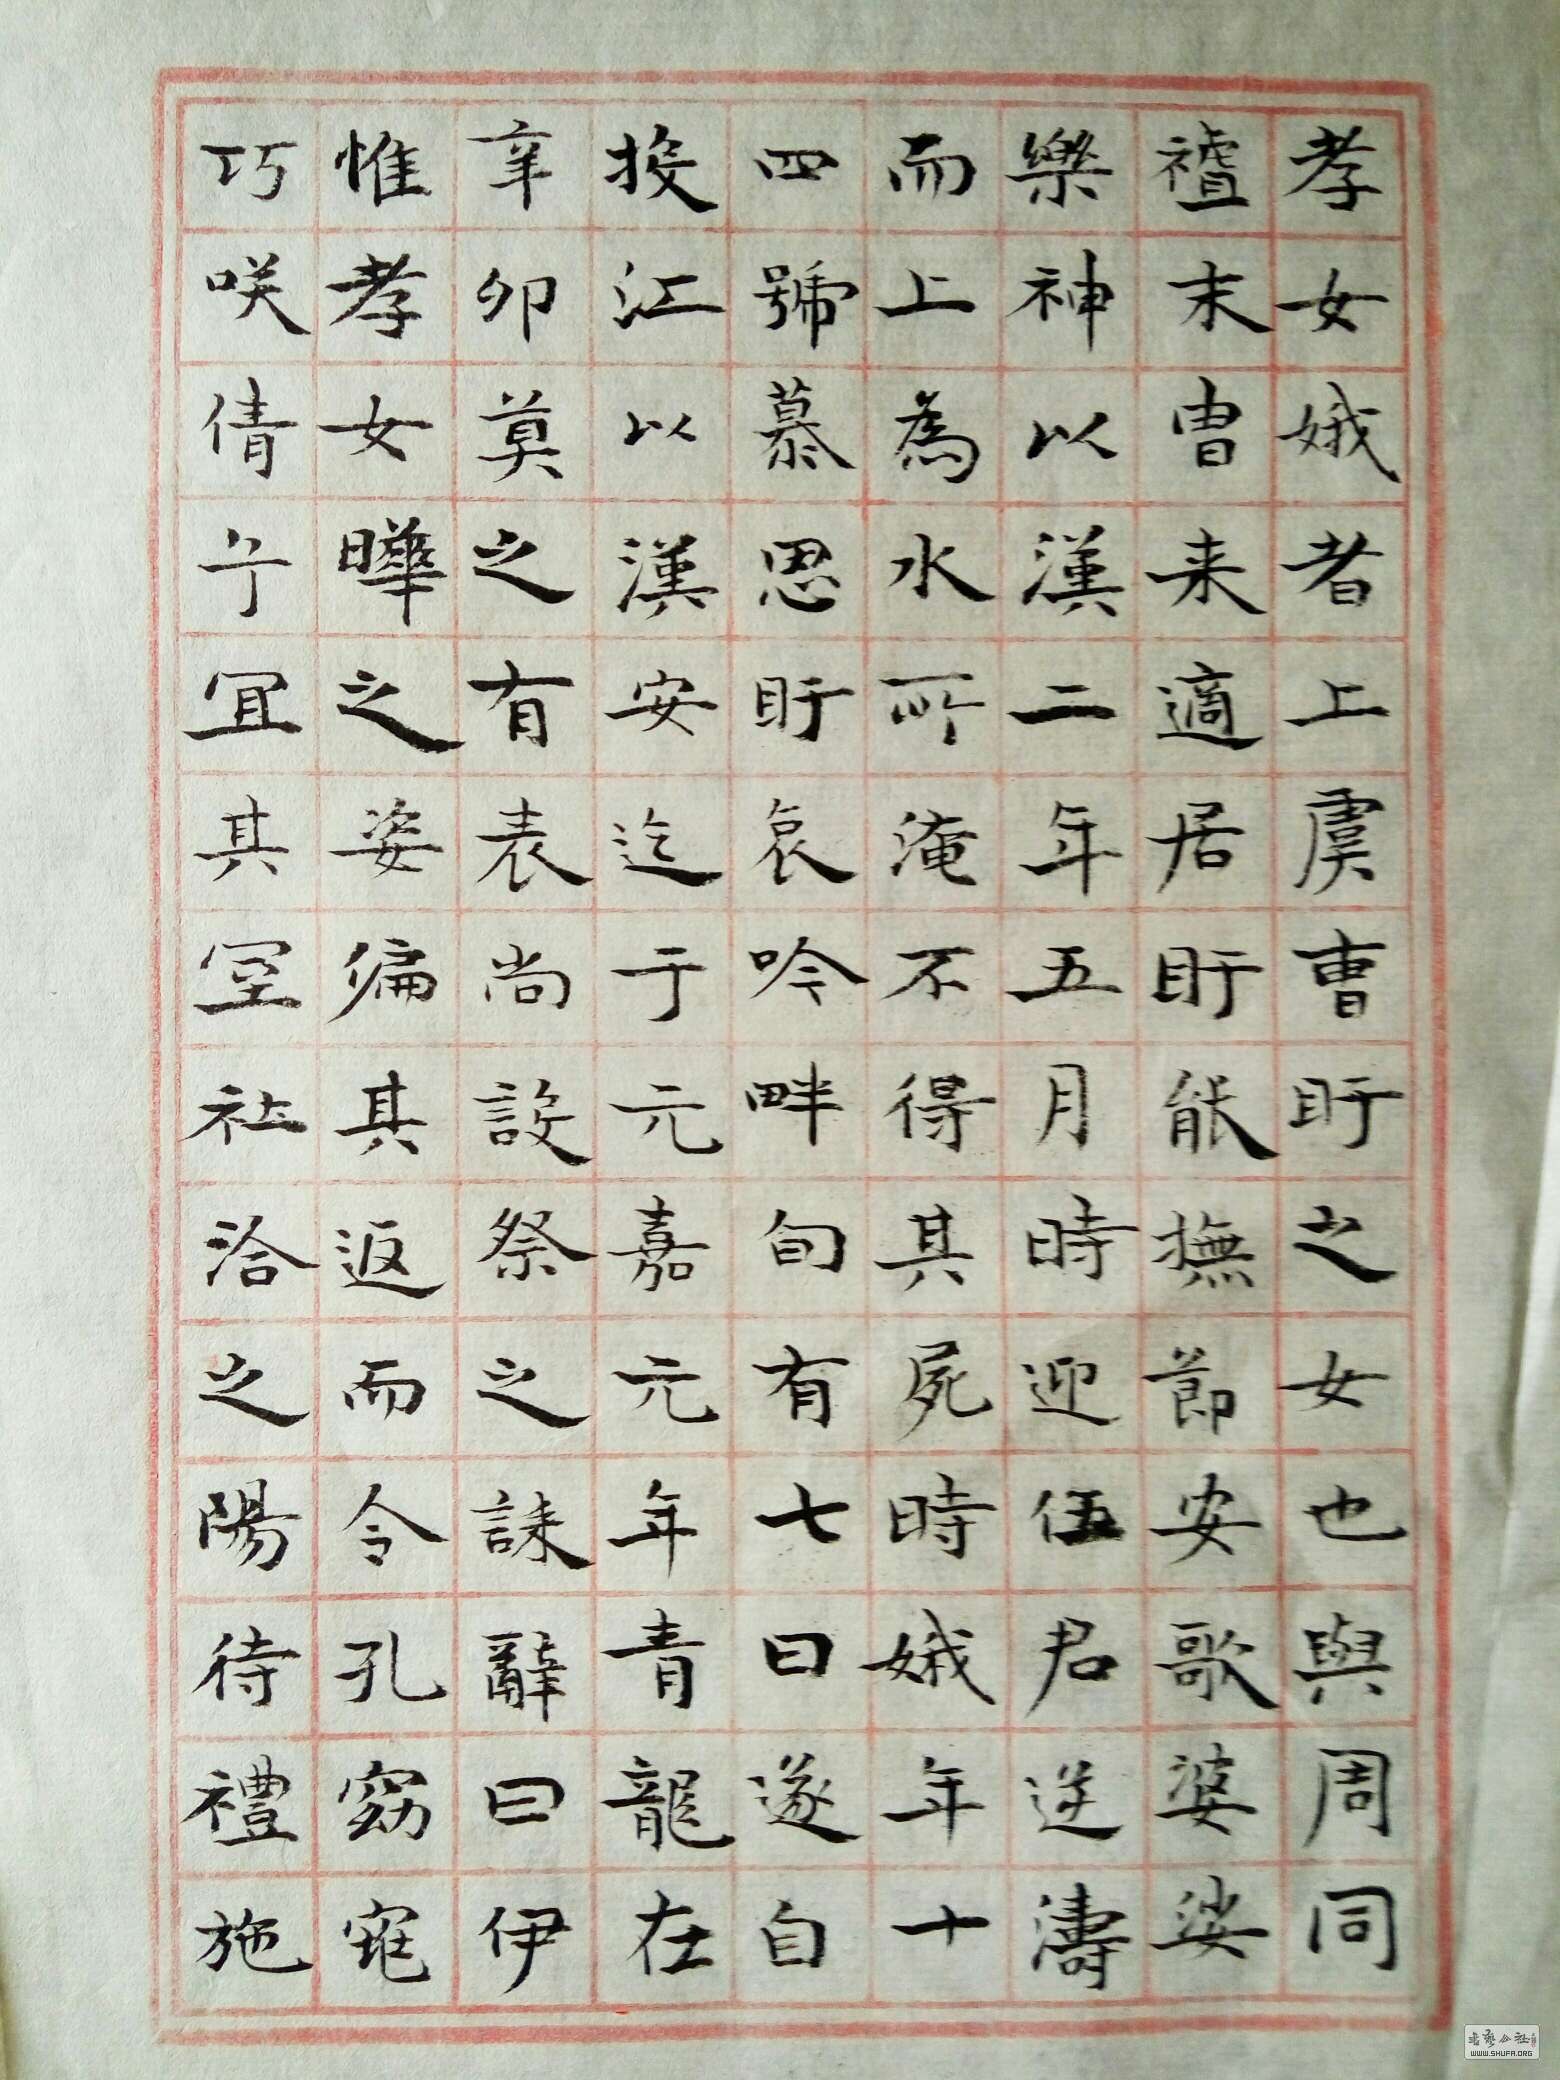 孝女娥者上虞曹盱之女也與周同
禮末胄来適居盱能撫節安歌婆娑
樂神以漢二年五月時迎伍君逆濤
而上為水所淹不得其屍時娥年十
四號慕思盱哀吟畔旬有七日遂自
投江以漢安迄于元嘉元年青龍在
辛卯莫之有表尚設祭之誄辭曰伊
惟孝女曄之姿偏其返而令孔窈窕
巧咲倩兮宜其室社洽之陽待禮施
WWW.SHUFA.ORG